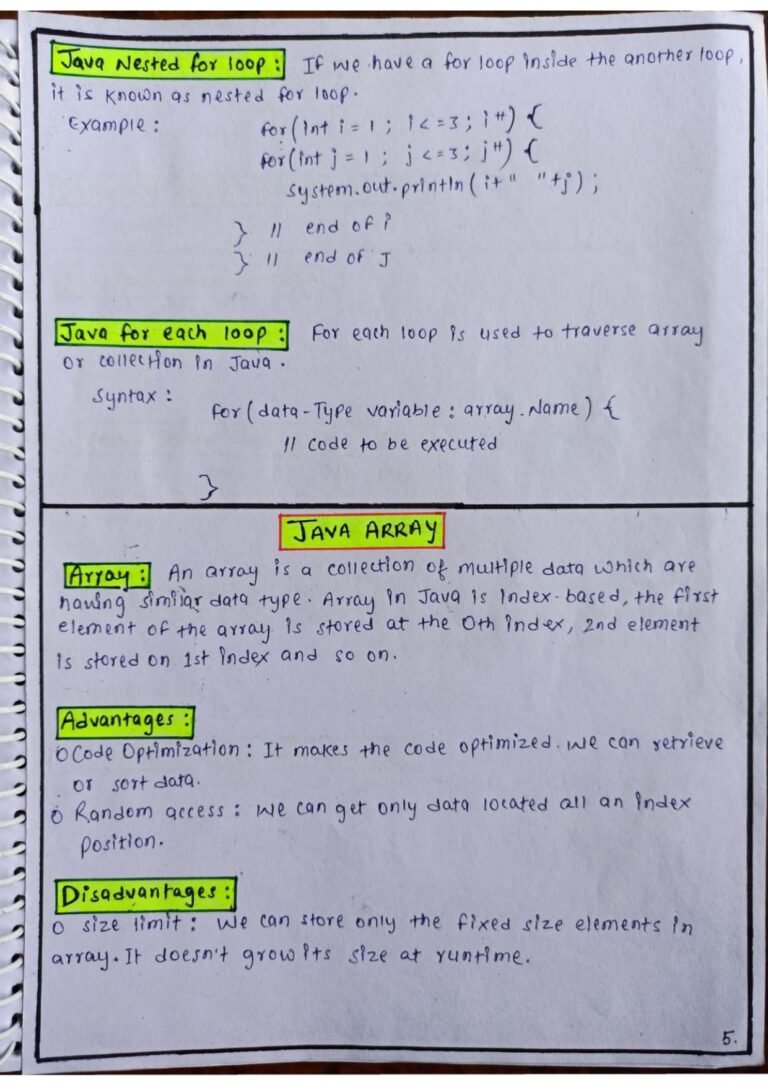 Java Nested for loop : If we have a for loop inside the another loop,
it is known as nested for loop.
Example : for(int i = 1 ; i <= 3 ; i++) {
for(int j = 1 ; j <= 3 ; j++) {
system.out.println( i+ "  " +j) ;
} // end of i
} // end of J
Java for each loop : For each loop is used to traverse array
or collection in Java.
Syntax :
for ( data-Type variable : array.Name ) {
// code to be executed
}
JAVA ARRAY
Array : An array is a collection of multiple data which are
having similar data type. Array in Java is index-based, the first
element of the array is stored at the 0th index, 2nd element
is stored on 1st index and so on.
Advantages :
o Code Optimization : It makes the code optimized. We can retrieve
or sort data.
o Random access : We can get only data located all an index
position.
Disadvantages :
o size limit : We can store only the fixed size elements in
array. It doesn't grow its size at runtime.
5.